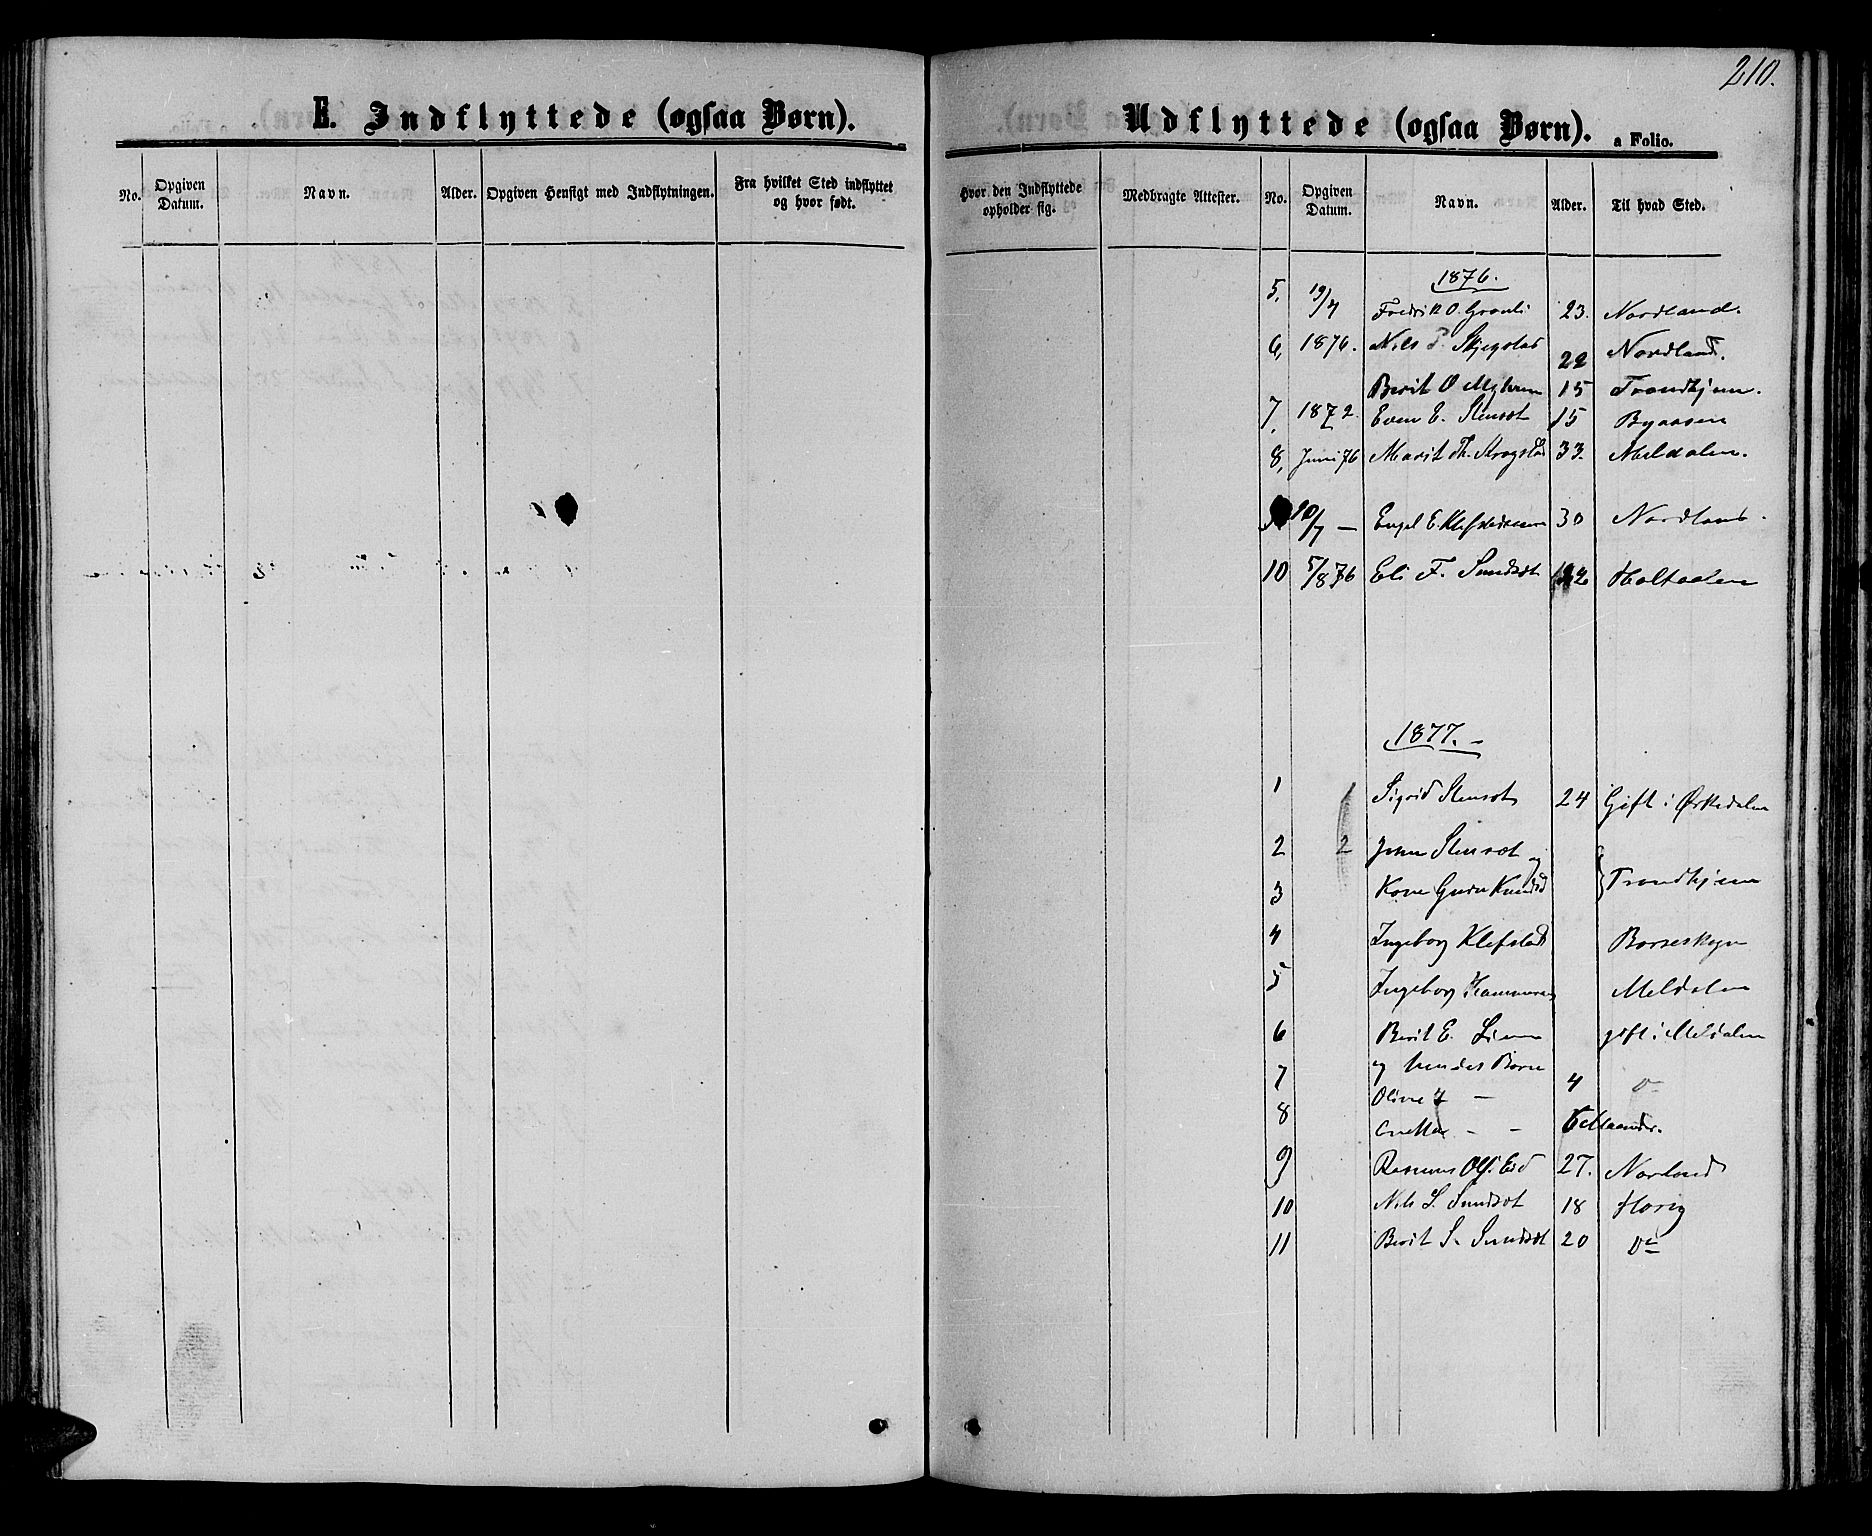 210.
E. Indflyttede (ogsaa Børn).
No. Opgiven Datum. Navn. Alder. Opgiven Hensigt med Indflytningen. Fra hvilket Sted indflyttet og hvor født.
Udflyttede (ogsaa Børn). a Folio.
Hvor den Indflyttede opholder sig. Medbragte Attester. No. Opgiven Datum. Navn. Alder. Til hvad Sted.
1876.
5, 19/4 Fredrik O. Gronli 23. Nordland.
6, 1876. Nils P. Skjegstad 22 Nordland.
Berit O Myhren 15 Trondhjem.
7, 1872 Even E. Stensæt 15 Byaasen
8, Juni 76 Marit Th. Krogstad 33. Meldalen.
10/7 — Engel E. 30 Nordland.
10 5/876 Eli F. Sundsæt Holtaalen
1877. -
1 Sigrid Stensæt 24 Gift i Ørkedalen
2 2 John Stensæt og
3 Kone Guru Trondhjem
4 Ingeborg Klefstad Borseskogn
5 Ingeborg Meldalen
6 Berit E. Lien gift i Meldalen
7 og hendes Børn
Oline 4 do
8 - - 6 Maander.
9 Rasmus Ols. 27. Norland
10 Nils S. Sundsæt 18 Horig
11 Berit S. Sundsæt 20 do